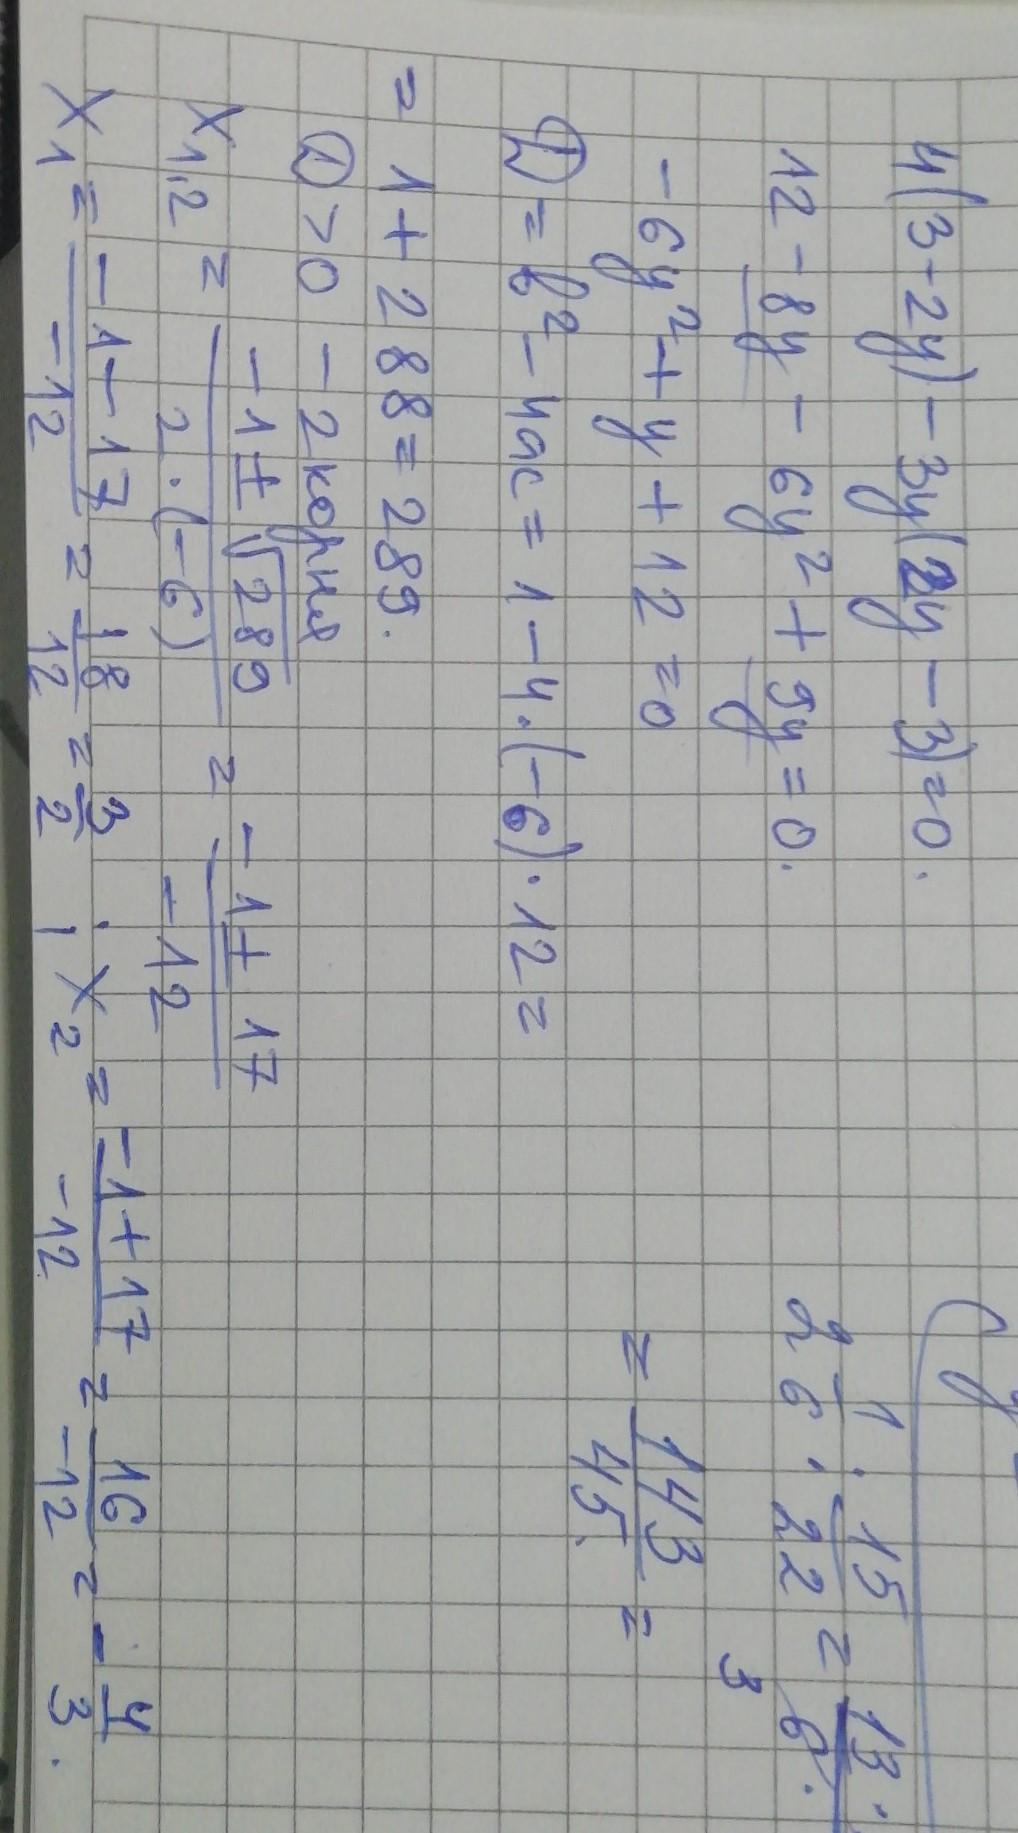 4(3-2y)-3y(2y-3)=0.
12-8y-6y²+9y=0.
-6y²+y+12=0
D=b²-4ac=1-4·(-6)·12=
=1+288=289.
D>0 - 2 корня
x1,2 = (-1±√289)/(2·(-6)) = (-1±17)/(-12)
x1 = (-1-17)/(-12) = 18/12 = 3/2 ; x2 = (-1+17)/(-12) = 16/(-12) = -4/3.
2 1/6 : 15/22 = 13·/6·
3
= 143/45 =